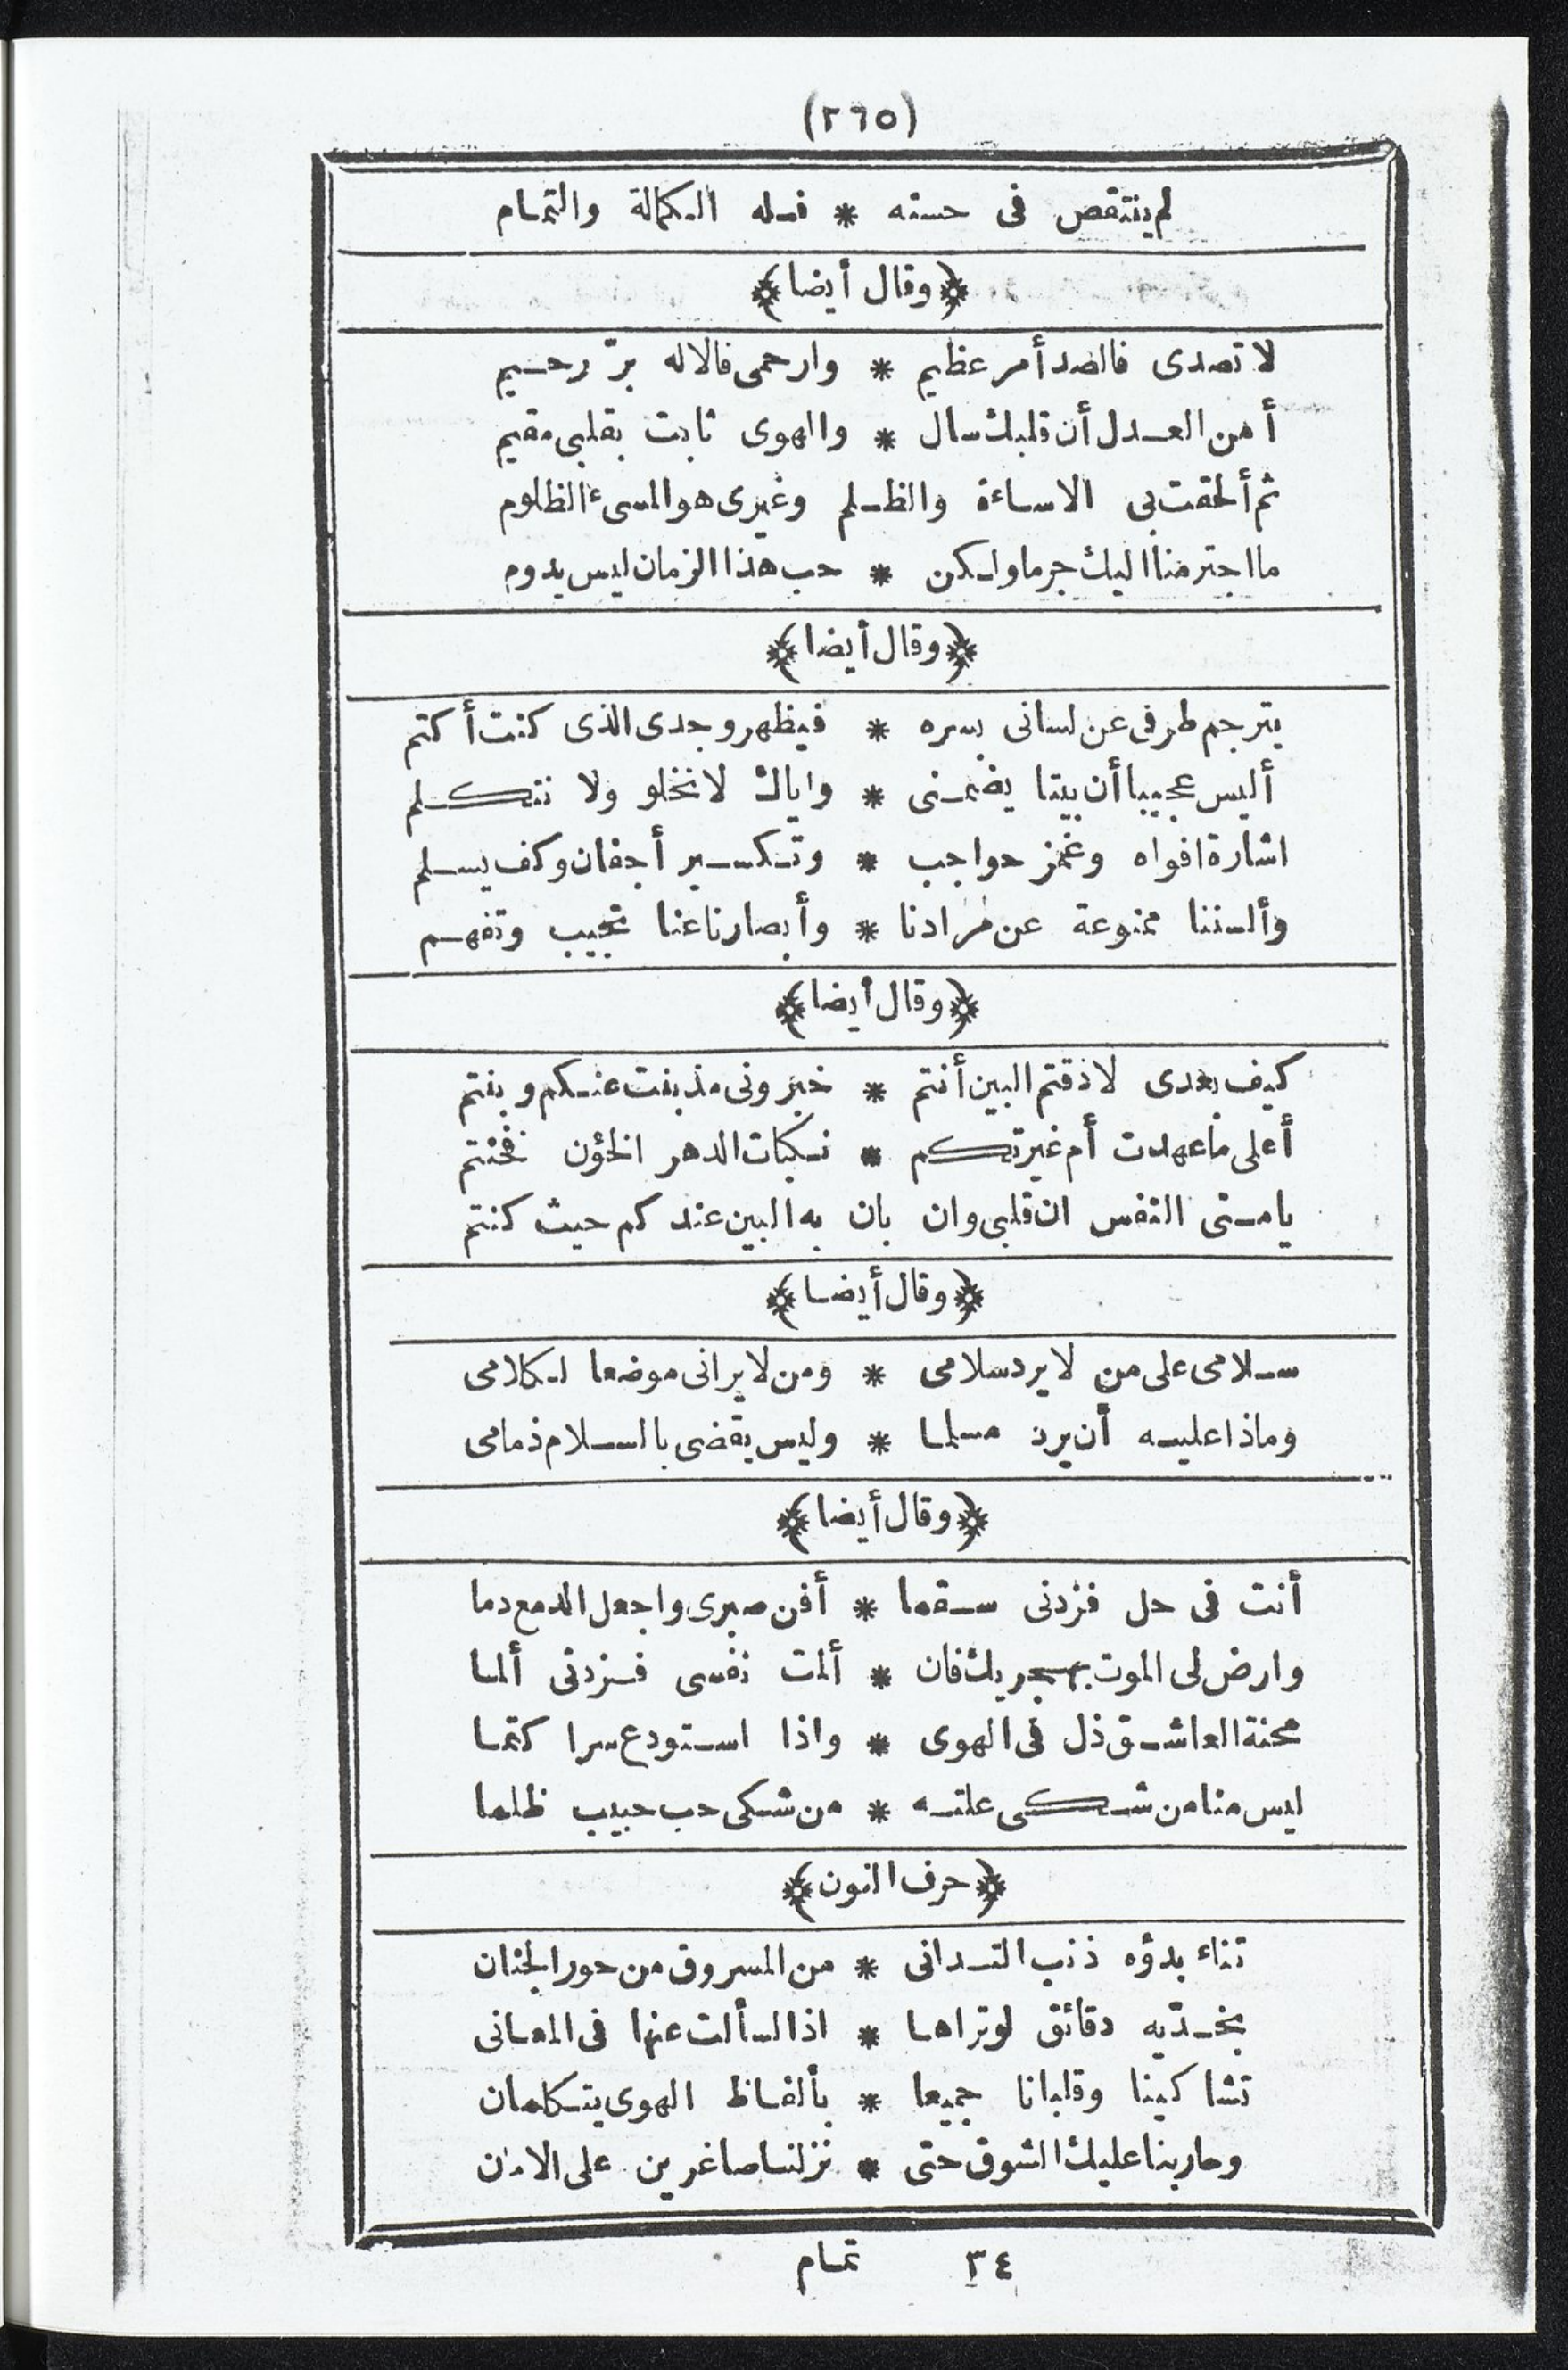 (٢٦٥)
لم ينتقص فى حسنه * فله الكمالة والتمام
﴿وقال أيضا﴾
لا تصدى فالصد أمر عظيم * وارحمى فالاله برّ رحيم
أمن العدل أن قلبك سال * والهوى ثابت بقلبى مقيم
ثم ألحقت بى الاساءة والظلم وغيرى هو المسىء الظلوم
ما اجترمنا اليك جرما ولكن * حب هذا الزمان ليس يدوم
﴿وقال أيضا﴾
يترجم طرفى عن لسانى بسره * فيظهر وجدى الذى كنت أكتم
أليس عجيبا أن بيتا يضمنى * واياك لا نخلو ولا نتكلم
اشارة افواه وغمز حواجب * وتكسير أجفان وكف يسلم
وألسننا ممنوعة عن مرادنا * وأبصارنا عنا تجيب وتفهم
﴿وقال أيضا﴾
كيف بعدى لا ذقتم البين أنتم * خبرونى مذ بنت عنكم وبنتم
أعلى ما عهدت أم غيرتكم * نكبات الدهر الخؤن فخنتم
يا منى النفس ان قلبى وان بان به البين عندكم حيث كنتم
﴿وقال أيضا﴾
سلامى على من لا يرد سلامى * ومن لا يرانى موضعا لكلامى
وماذا عليه أن يرد مسلما * وليس يقضى بالسلام ذمامى
﴿وقال أيضا﴾
أنت فى حل فزدنى سقما * أفن صبرى واجعل الدمع دما
وارض لى الموت بهجريك فان * ألمت نفسى فزدنى ألما
محنة العاشق ذل فى الهوى * واذا استودع سرا كتما
ليس منا من شكى علته * من شكى حب حبيب ظلما
﴿حرف النون﴾
تناء بدؤه ذنب التدانى * من المسروق من حور الجنان
بخدّيه دقائق لو تراها * اذا لسألت عنها فى المعانى
تشاكينا وقلبانا جميعا * بألفاظ الهوى يتكلمان
وحاربنا عليك الشوق حتى * نزلنا صاغرين على الامان
٣٤ تمام